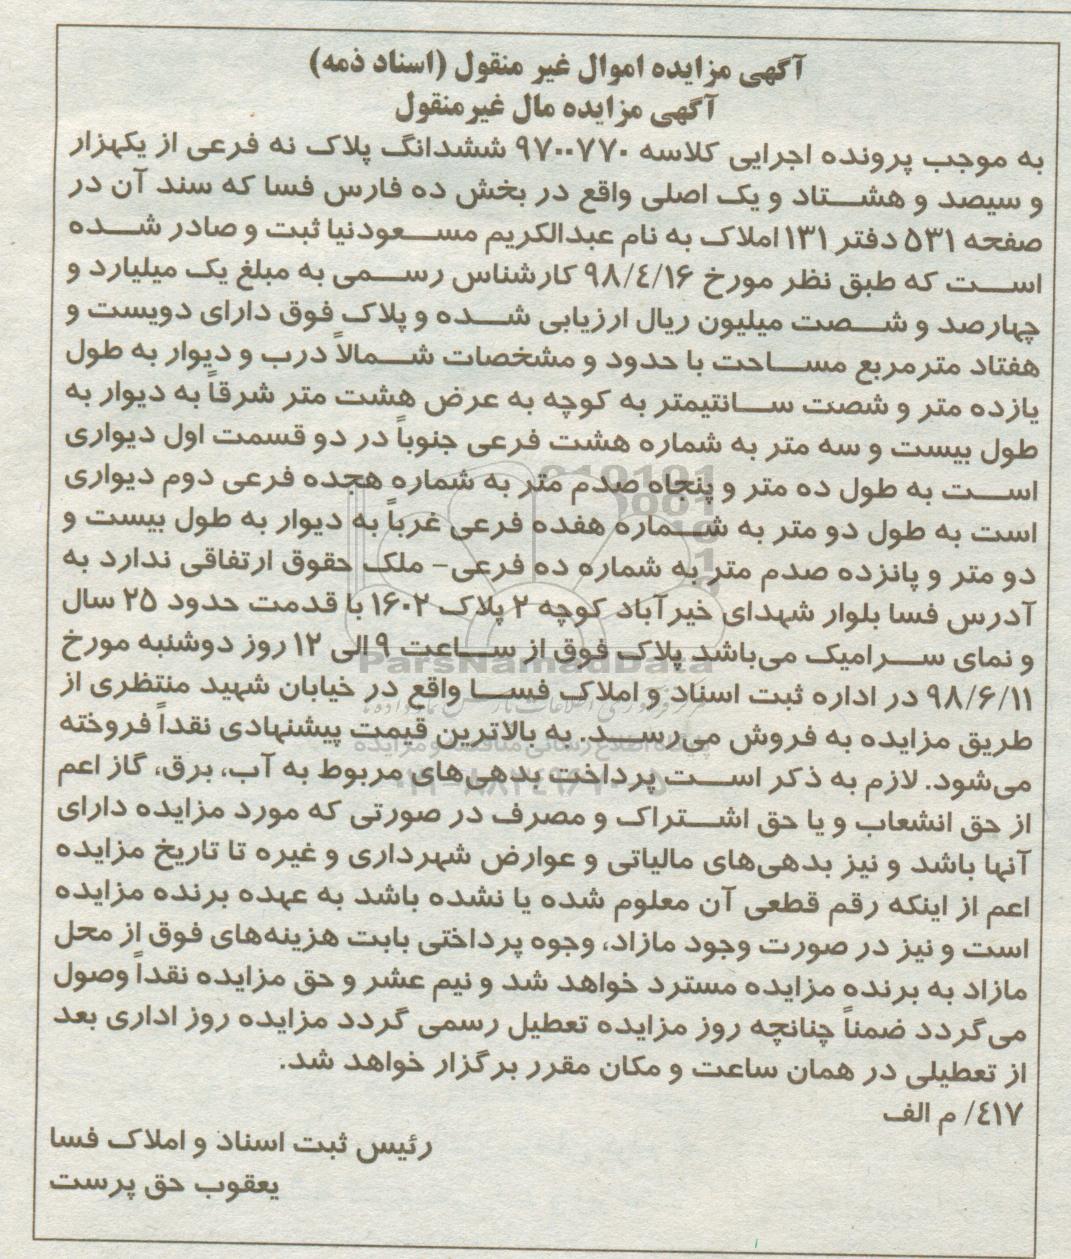 آگهی مزایده اموال غیر منقول (اسناد ذمه)
آگهی مزایده مال غیرمنقول
به موجب پرونده اجرایی کلاسه ۹۷۰۰۷۷۰ ششدانگ پلاک نه فرعی از یکهزار
و سیصد و هشتاد و یک اصلی واقع در بخش ده فارس فسا که سند آن در
صفحه ۵۳۱ دفتر ۱۳۱ املاک به نام عبدالکریم مسعودنیا ثبت و صادر شده
است که طبق نظر مورخ ۹۸/٤/۱۶ کارشناس رسمی به مبلغ یک میلیارد و
چهارصد و شصت میلیون ریال ارزیابی شده و پلاک فوق دارای دویست و
هفتاد مترمربع مساحت با حدود و مشخصات شمالاً درب و دیوار به طول
یازده متر و شصت سانتیمتر به کوچه به عرض هشت متر شرقاً به دیوار به
طول بیست و سه متر به شماره هشت فرعی جنوباً در دو قسمت اول دیواری
است به طول ده متر و پنجاه صدم متر به شماره هجده فرعی دوم دیواری
است به طول دو متر به شماره هفده فرعی غرباً به دیوار به طول بیست و
دو متر و پانزده صدم متر به شماره ده فرعی- ملک حقوق ارتفاقی ندارد به
آدرس فسا بلوار شهدای خیرآباد کوچه ۲ پلاک ۱۶۰۲ با قدمت حدود ۲۵ سال
و نمای سرامیک می‌باشد پلاک فوق از ساعت ۹ الی ۱۲ روز دوشنبه مورخ
۹۸/۶/۱۱ در اداره ثبت اسناد و املاک فسا واقع در خیابان شهید منتظری از
طریق مزایده به فروش می‌رسد. به بالاترین قیمت پیشنهادی نقداً فروخته
می‌شود. لازم به ذکر است پرداخت بدهی‌های مربوط به آب، برق، گاز اعم
از حق انشعاب و یا حق اشتراک و مصرف در صورتی که مورد مزایده دارای
آنها باشد و نیز بدهی‌های مالیاتی و عوارض شهرداری و غیره تا تاریخ مزایده
اعم از اینکه رقم قطعی آن معلوم شده یا نشده باشد به عهده برنده مزایده
است و نیز در صورت وجود مازاد، وجوه پرداختی بابت هزینه‌های فوق از محل
مازاد به برنده مزایده مسترد خواهد شد و نیم عشر و حق مزایده نقداً وصول
می‌گردد ضمناً چنانچه روز مزایده تعطیل رسمی گردد مزایده روز اداری بعد
از تعطیلی در همان ساعت و مکان مقرر برگزار خواهد شد.
٤۱۷/ م الف
رئیس ثبت اسناد و املاک فسا
یعقوب حق پرست
ParsNamadData